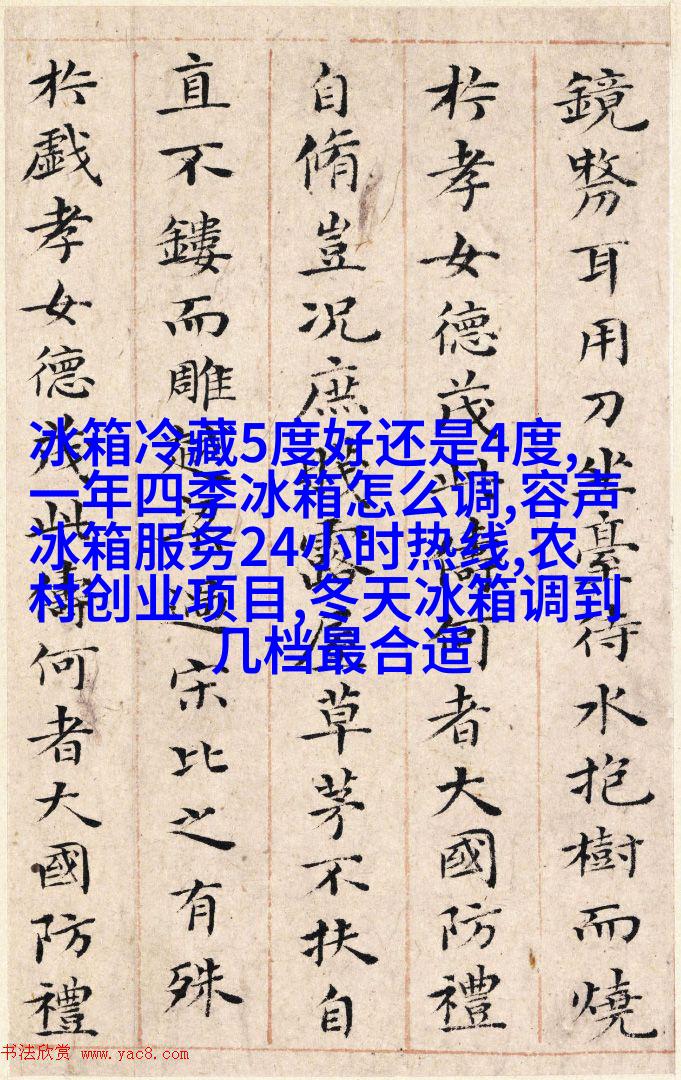 鏡剺耳用刀坐臺待水抱樹而燒
於孝女德茂此儔何者大國防禮
自脩豈况庶賤露屋草茅不扶自
直不鏤而雕越梁過宋比之有殊
於戲孝女德茂此儔何者大國防禮
冰箱冷藏5度好还是4度,
一年四季冰箱怎么调,容声
冰箱服务24小时热线,农
村创业项目,冬天冰箱调到
几档最合适
书法欣赏 www.yac8.com